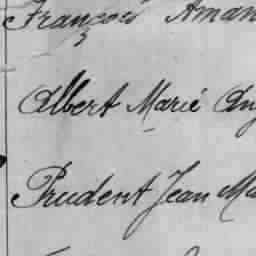 François Aman
Albert Marie Au
Prudent Jean Ma